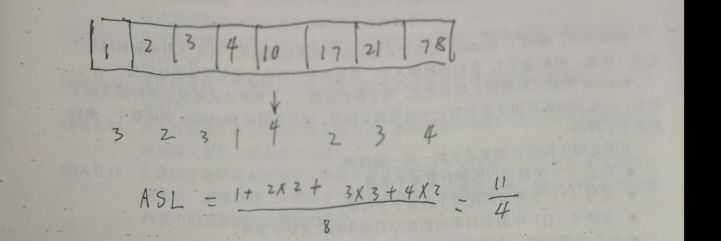 1 2 3 4 10 17 21 78
↓
3 2 3 1 4 2 3 4
ASL = (1+ 2×2 + 3×3 + 4×2) / 8 = 11 / 4